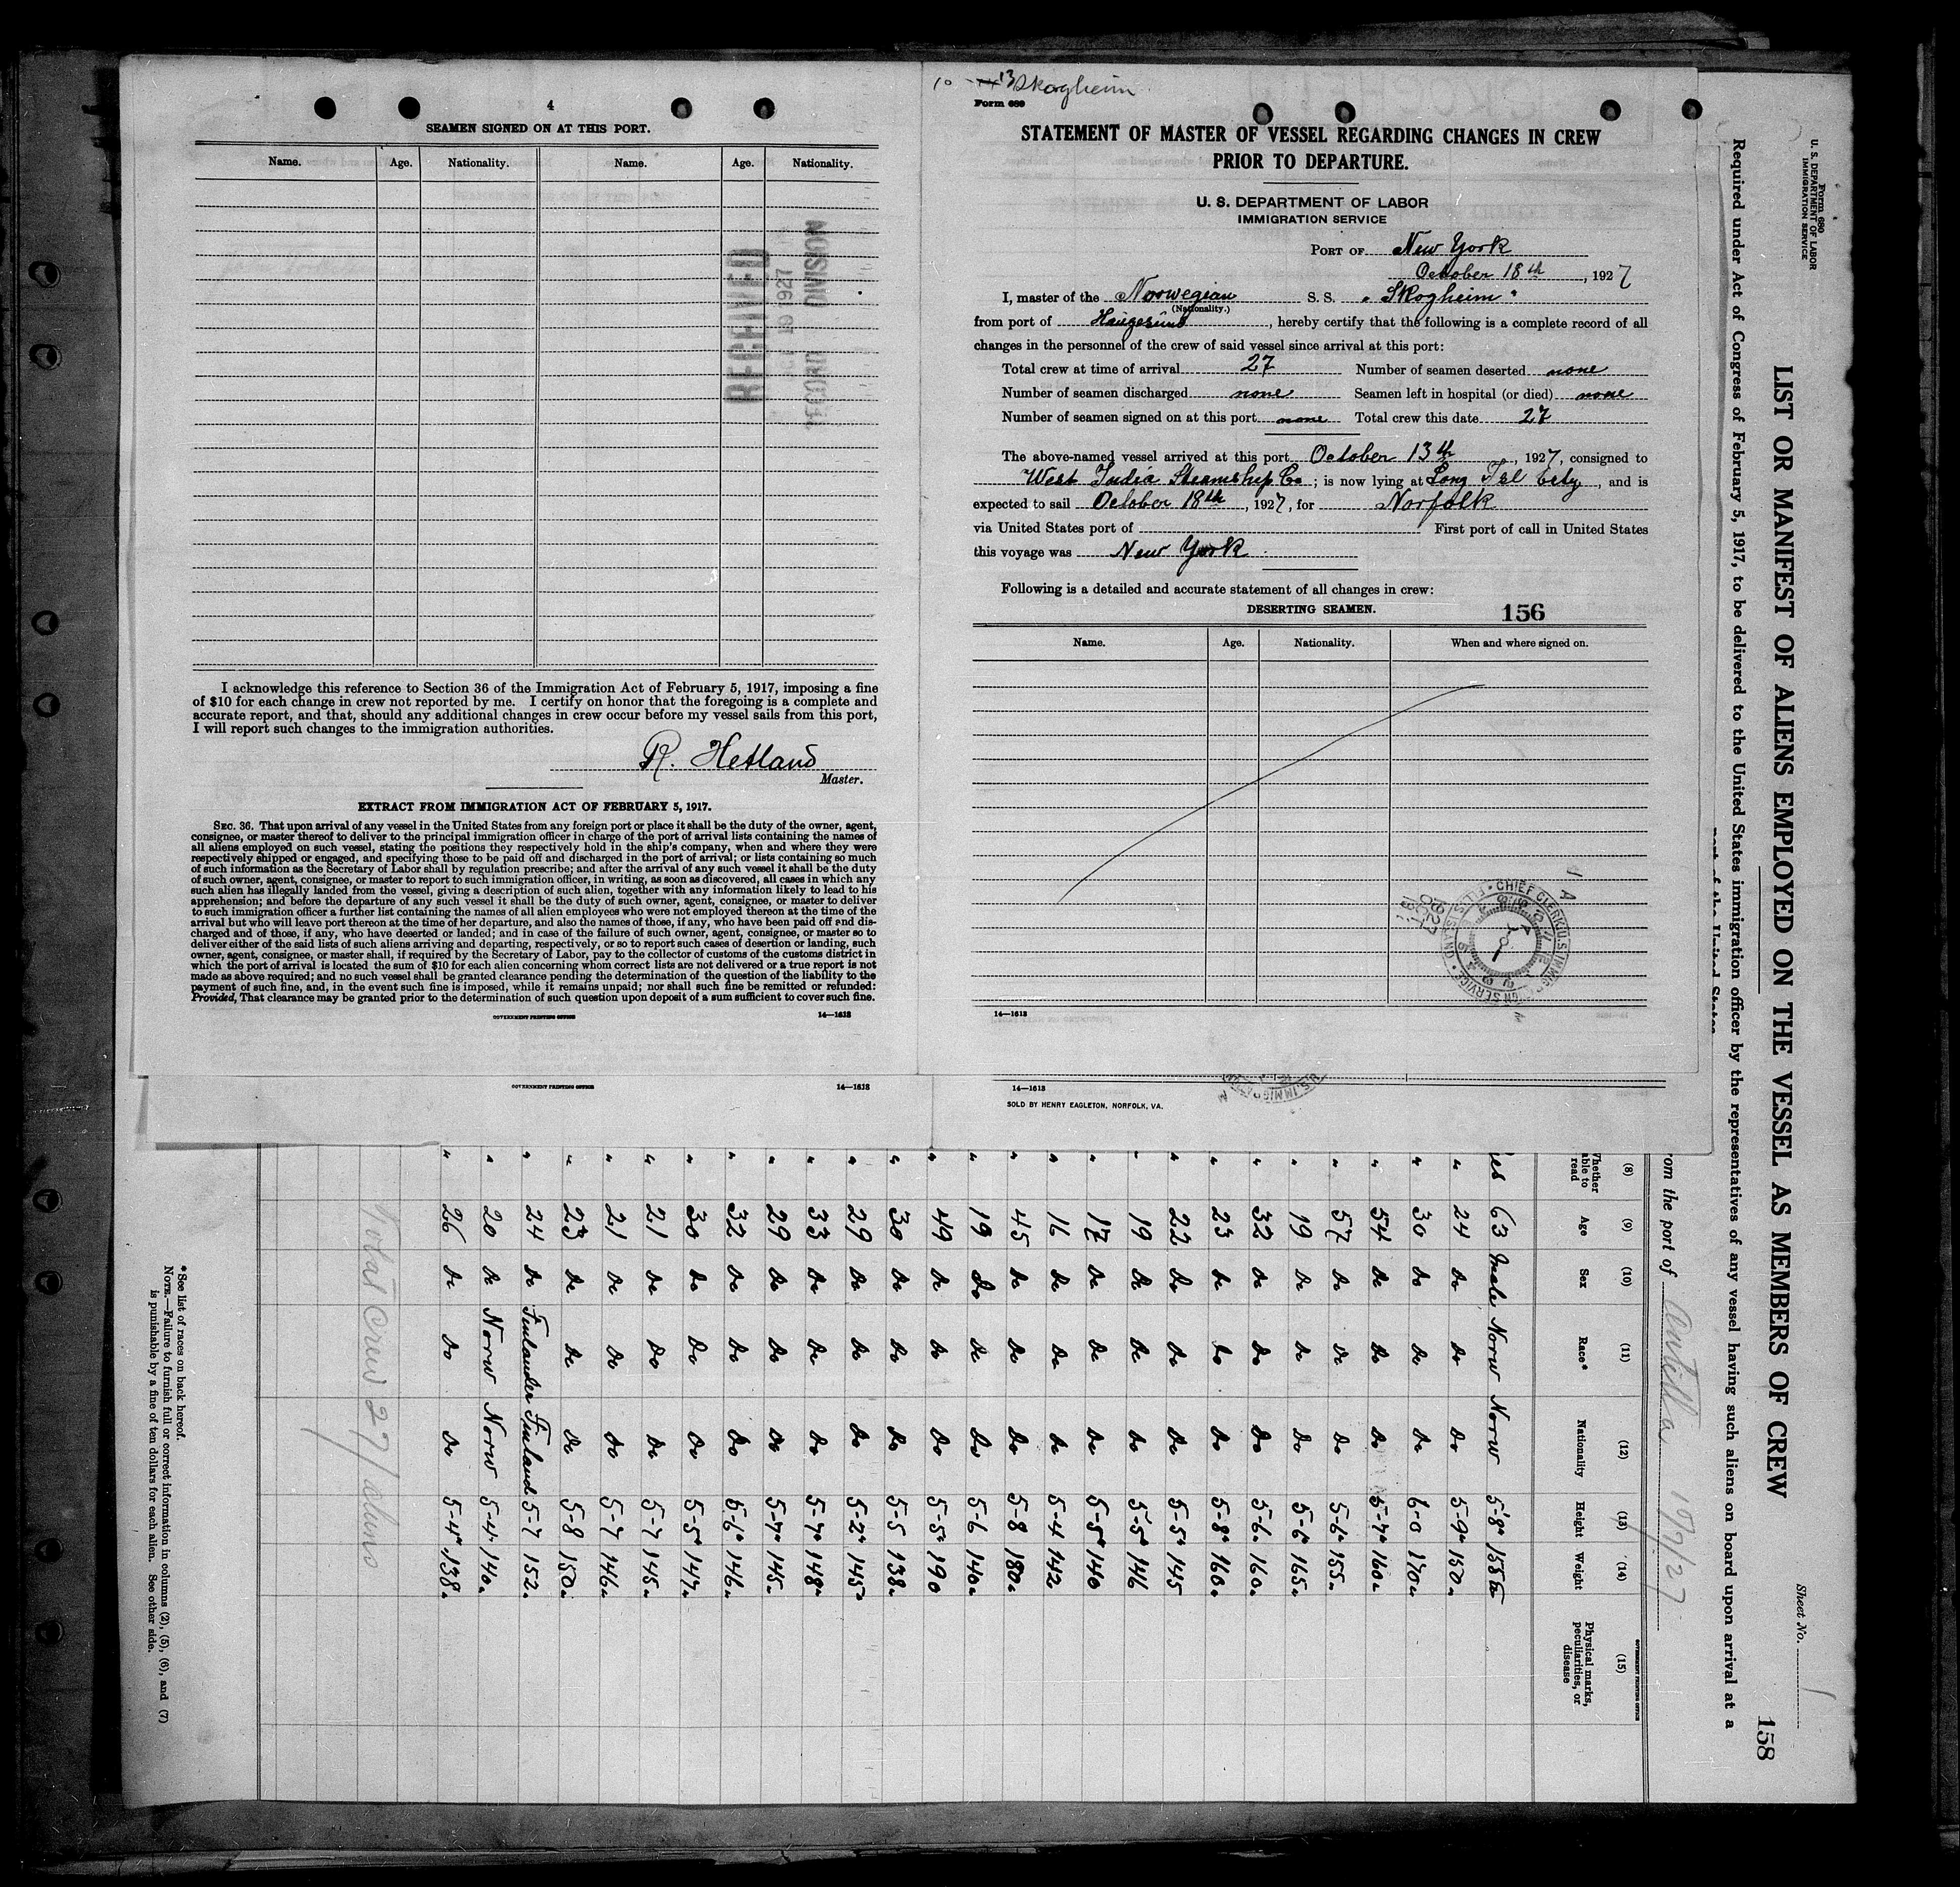 4
SEAMEN SIGNED ON AT THIS PORT.
Name. Age. Nationality. Name. Age. Nationality.
RECEIVED
1927
RECORD DIVISION
I acknowledge this reference to Section 36 of the Immigration Act of February 5, 1917, imposing a fine
of $10 for each change in crew not reported by me. I certify on honor that the foregoing is a complete and
accurate report, and that, should any additional changes in crew occur before my vessel sails from this port,
I will report such changes to the immigration authorities.
R. Hetland
Master.
EXTRACT FROM IMMIGRATION ACT OF FEBRUARY 5, 1917.
SEC. 36. That upon arrival of any vessel in the United States from any foreign port or place it shall be the duty of the owner, agent,
consignee, or master thereof to deliver to the principal immigration officer in charge of the port of arrival lists containing the names of
all aliens employed on such vessel, stating the positions they respectively hold in the ship's company, when and where they were
respectively shipped or engaged, and specifying those to be paid off and discharged in the port of arrival; or lists containing so much
of such information as the Secretary of Labor shall by regulation prescribe; and after the arrival of any such vessel it shall be the duty
of such owner, agent, consignee, or master to report to such immigration officer, in writing, as soon as discovered, all cases in which any
such alien has illegally landed from the vessel, giving a description of such alien, together with any information likely to lead to his
apprehension; and before the departure of any such vessel it shall be the duty of such owner, agent, consignee, or master to deliver
to such immigration officer a further list containing the names of all alien employees who were not employed thereon at the time of the
arrival but who will leave port thereon at the time of her departure, and also the names of those, if any, who have been paid off and dis-
charged and of those, if any, who have deserted or landed; and in case of the failure of such owner, agent, consignee, or master so to
deliver either of the said lists of such aliens arriving and departing, respectively, or so to report such cases of desertion or landing, such
owner, agent, consignee, or master, shall, if required by the Secretary of Labor, pay to the collector of customs of the customs district in
which the port of arrival is located the sum of $10 for each alien concerning whom correct lists are not delivered or a true report is not
made as above required; and no such vessel shall be granted clearance pending the determination of the question of the liability to the
payment of such fine, and, in the event such fine is imposed, while it remains unpaid; nor shall such fine be remitted or refunded:
Provided, That clearance may be granted prior to the determination of such question upon deposit of a sum sufficient to cover such fine.
GOVERNMENT PRINTING OFFICE 14—1613
GOVERNMENT PRINTING OFFICE 14—1613
10 - 13 Skogheim
Form 689
STATEMENT OF MASTER OF VESSEL REGARDING CHANGES IN CREW
PRIOR TO DEPARTURE.
U. S. DEPARTMENT OF LABOR
IMMIGRATION SERVICE
PORT OF New York
October 18th, 1927
I, master of the Norwegian S. S. "Skogheim"
(Nationality.)
from port of Haugesund, hereby certify that the following is a complete record of all
changes in the personnel of the crew of said vessel since arrival at this port:
Total crew at time of arrival 27 Number of seamen deserted none
Number of seamen discharged none Seamen left in hospital (or died) none
Number of seamen signed on at this port none Total crew this date 27
The above-named vessel arrived at this port October 13th, 1927, consigned to
West India Steamship Co; is now lying at Long Isl City, and is
expected to sail October 18th, 1927, for Norfolk
via United States port of First port of call in United States
this voyage was New York
Following is a detailed and accurate statement of all changes in crew:
DESERTING SEAMEN. 156
Name. Age. Nationality. When and where signed on.
CHIEF CLERK U.S. IMMIGRATION SERVICE ELLIS ISLAND
14—1613
14—1613
SOLD BY HENRY EAGLETON, NORFOLK, VA.
Form 680
U. S. DEPARTMENT OF LABOR
IMMIGRATION SERVICE
Sheet No. 1
158
LIST OR MANIFEST OF ALIENS EMPLOYED ON THE VESSEL AS MEMBERS OF CREW
Required under Act of Congress of February 5, 1917, to be delivered to the United States immigration officer by the representatives of any vessel having such aliens on board upon arrival at a
port of the United States
from the port of Antilla 10/7/27
GOVERNMENT PRINTING OFFICE
(8) (9) (10) (11) (12) (13) (14) (15)
Whether able to read Age Sex Race* Nationality Height Weight Physical marks, peculiarities, or disease
yes 63 Male Norw Norw 5-8" 155 lb
" 24 do do do 5-9" 150"
" 30 do do do 6-0 170"
" 54 do do do 5-7" 160"
" 57 do do do 5-6" 155"
" 19 do do do 5-6" 165"
" 32 do do do 5-6" 160"
" 23 do do do 5-8" 160"
" 22 do do do 5-5" 145
" 19 do do do 5-5" 146
" 17 do do do 5-5" 140
" 16 do do do 5-4 142
" 45 do do do 5-8 180"
" 19 do do do 5-6 140"
" 49 do do do 5-5" 190
" 30 do do do 5-5 138"
" 29 do do do 5-2" 145"
" 33 do do do 5-7" 148"
" 29 do do do 5-7" 145"
" 32 do do do 5-6" 146"
" 30 do do do 5-5" 147"
" 21 do do do 5-7 145"
" 21 do do do 5-7 146"
" 23 do do do 5-8 150"
" 24 do Finlander Finland 5-7 152"
" 20 do Norw Norw 5-4" 140"
" 26 do do do 5-4" 138"
Total Crew 27 / aliens
*See list of races on back hereof.
NOTE.—Failure to furnish full or correct information in columns (2), (5), (6), and (7)
is punishable by a fine of ten dollars for each alien. See other side.